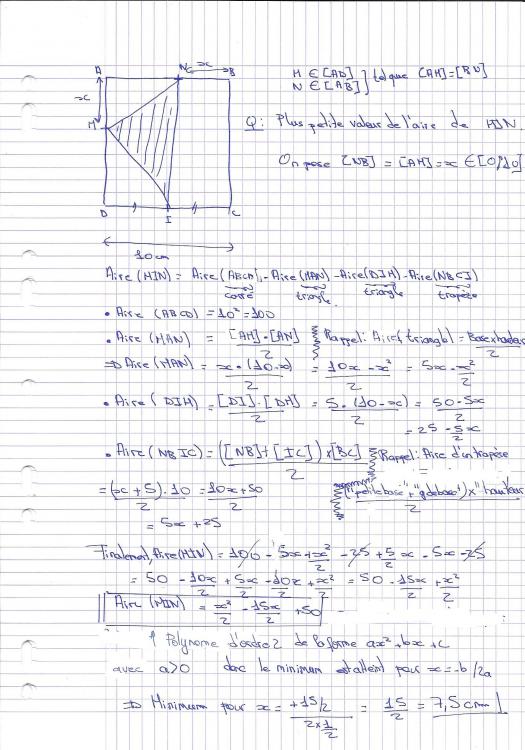 A N x B
x
M
D I C
10cm
M ∈ [AD] } tel que [AM]=[BN]
N ∈ [AB]
Q: Plus petite valeur de l'aire de MIN.
On pose [NB] = [AM] = x ∈ [0,10]
Aire(MIN) = Aire(ABCD) - Aire(MAN) - Aire(DIM) - Aire(NBCI)
carré triangle triangle trapèze
• Aire (ABCD) = 10² = 100
• Aire (MAN) = [AM]·[AN]/2 Rappel: Aire(triangle) = Base x hauteur/2
⇒ Aire (MAN) = x·(10-x)/2 = 10x - x²/2 = 5x - x²/2
• Aire (DIM) = [DI]·[DM]/2 = 5·(10-x)/2 = 50-5x/2
= 25 - 5x/2
• Aire (NBIC) = ([NB]+[IC]) x [BC]/2 Rappel: Aire d'un trapèze
=
= (x+5)·10/2 = 10x+50/2 ("petite base" + "gde base") x "hauteur"/2
= 5x + 25
Finalement, Aire(MIN) = 100 - 5x + x²/2 - 25 + 5/2 x - 5x - 25
= 50 - 10x/2 + 5x/2 - 10x/2 + x²/2 = 50 - 15x/2 + x²/2
Aire (MIN) = x²/2 - 15x/2 + 50
1 Polynome d'ordre 2 de la forme ax²+bx+c
avec a>0 donc le minimum est atteint pour x = -b/2a
⇒ Minimum pour x = +15/2 / 2x1/2 = 15/2 = 7,5cm !